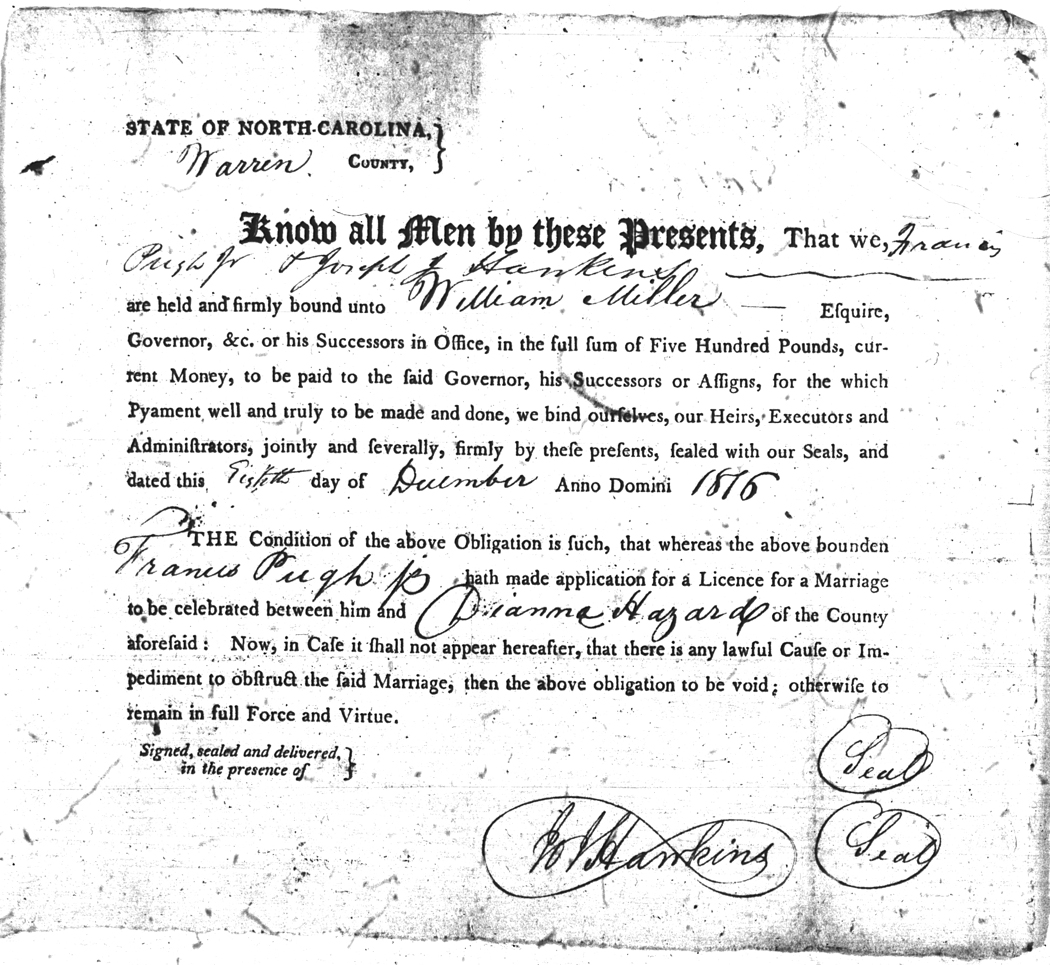 STATE OF NORTH-CAROLINA,
Warren County,
Know all Men by these Presents, That we, Francis
Pugh Jr & Joseph J Hawkins
are held and firmly bound unto William Miller Eſquire,
Governor, &c. or his Successors in Office, in the full ſum of Five Hundred Pounds, cur-
rent Money, to be paid to the ſaid Governor, his Successors or Aſſigns, for the which
Pyament well and truly to be made and done, we bind ourſelves, our Heirs, Executors and
Adminiſtrators, jointly and ſeverally, firmly by theſe preſents, ſealed with our Seals, and
dated this Eighth day of December Anno Domini 1816
THE Condition of the above Obligation is ſuch, that whereas the above bounden
Francis Pugh Jr hath made application for a Licence for a Marriage
to be celebrated between him and Dianna Hazard of the County
aforeſaid: Now, in Caſe it ſhall not appear hereafter, that there is any lawful Cauſe or Im-
pediment to obſtruct the ſaid Marriage, then the above obligation to be void; otherwiſe to
remain in full Force and Virtue.
Signed, sealed and delivered,
in the presence of
Seal
Jo J Hawkins Seal